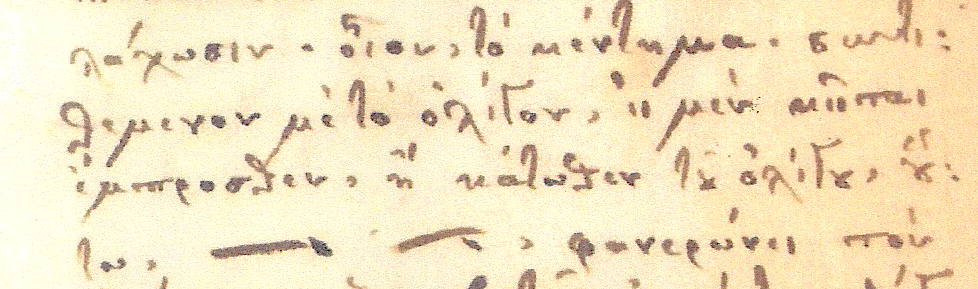 λάχωσιν· οἷον, τὸ κέντημα· συντι:
θέμενον μὲ τὸ ὀλίγον, εἰ μὲν κεῖται
ἔμπροσθεν, ἢ κάτωθεν τȣ ὀλίγȣ, ȣ̔́:
τω, φανερώνει τὸν